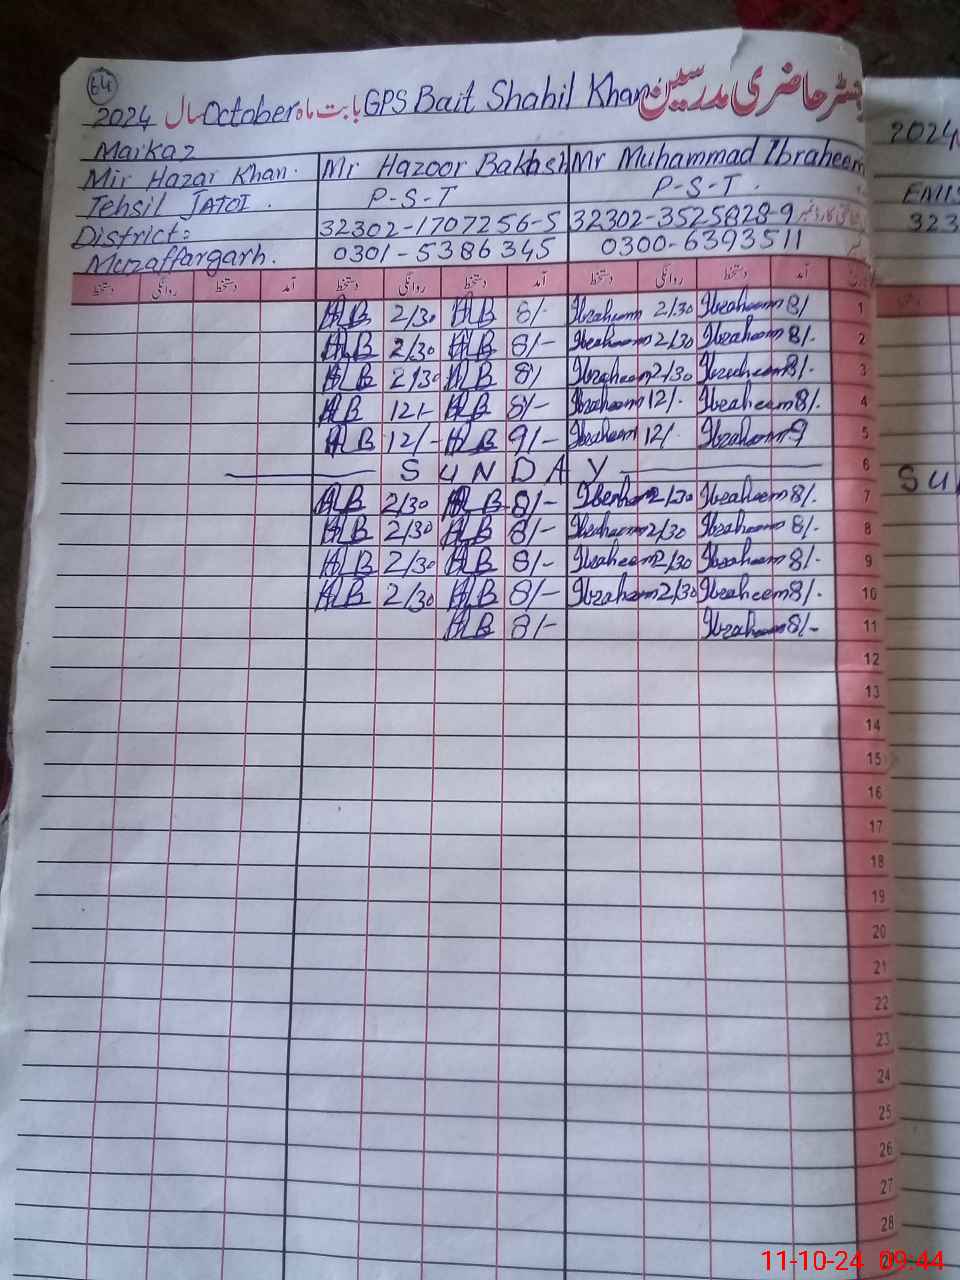 64
رجسٹر حاضری مدرسین GPS Bait Shahil Khan بابت ماہ October سال 2024
Markaz
Mir Hazar Khan. Mr Hazoor Bakhsh Mr Muhammad Ibraheem
Tehsil JATOI. P-S-T P-S-T.
District: 32302-1707256-5 32302-3525828-9
Muzaffargarh. 0301-5386345 0300-6393511
آمد دستخط روانگی دستخط آمد دستخط روانگی دستخط آمد دستخط روانگی دستخط
HB 2/30 HB 8/- Ibraheem 2/30 Ibraheem 8/ 1
HB 2/30 HB 8/- Ibraheem 2/30 Ibraheem 8/. 2
HB 2/30 HB 8/ Ibraheem 2/30 Ibraheem 8/. 3
HB 12/- HB 8/- Ibraheem 12/. Ibraheem 8/. 4
HB 12/- HB 9/- Ibraheem 12/. Ibraheem 9 5
SUNDAY 6
HB 2/30 HB 8/- Ibraheem 2/30 Ibraheem 8/. 7
HB 2/30 HB 8/- Ibraheem 2/30 Ibraheem 8/. 8
HB 2/30 HB 8/- Ibraheem 2/30 Ibraheem 8/. 9
HB 2/30 HB 8/- Ibraheem 2/30 Ibraheem 8/. 10
HB 8/- Ibraheem 8/- 11
12
13
14
15
16
17
18
19
20
21
22
23
24
25
26
27
28
2024
323
SU
11-10-24 09:44